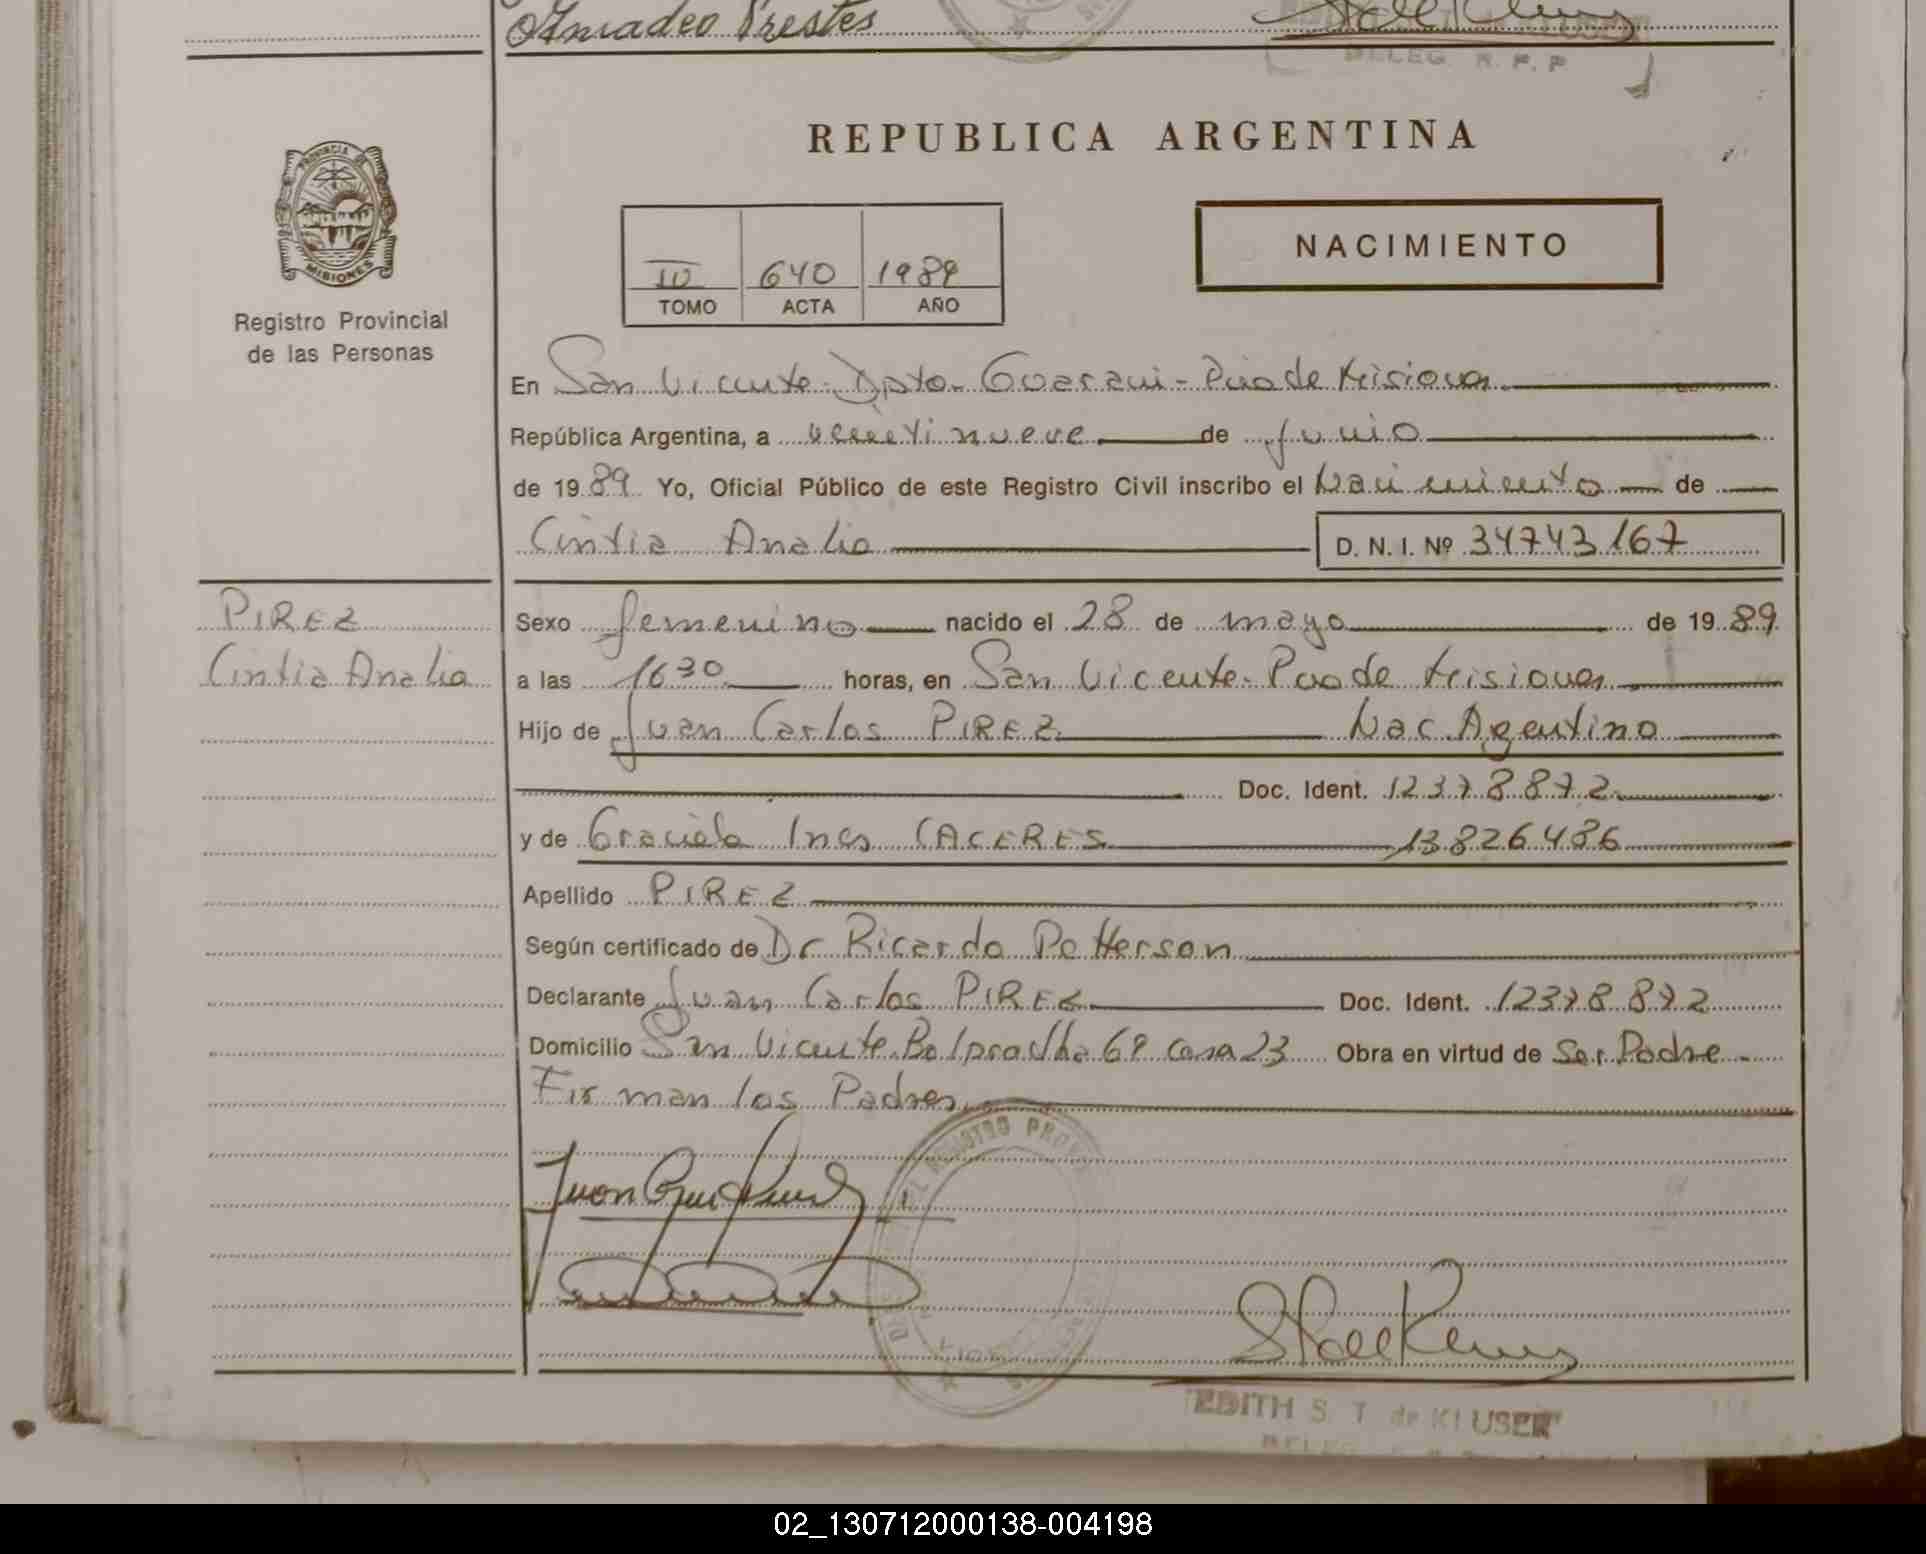 Amadeo Prestes
DELEG. R. P. P
PROVINCIA DE
MISIONES
Registro Provincial
de las Personas
REPUBLICA ARGENTINA
NACIMIENTO
III 640 1989
TOMO ACTA AÑO
En San Vicente - Dpto - Guarani - Pcia de Misiones
República Argentina, a veinti nueve de Junio
de 1989 Yo, Oficial Público de este Registro Civil inscribo el Nacimiento de
Cintia Analia D. N. I. Nº 34743167
PIREZ
Cintia Analia
Sexo femenino nacido el 28 de mayo de 1989
a las 16 30 horas, en San Vicente - Pcia de Misiones
Hijo de Juan Carlos PIREZ Nac. Agentino
Doc. Ident. 12378872
y de Graciela Ines CACERES 13826486
Apellido PIREZ
Según certificado de Dr Ricardo Petterson
Declarante Juan Carlos PIREZ Doc. Ident. 12378872
Domicilio San Vicente casa 23 Obra en virtud de Ser Padre
Firman los Padres
REGISTRO
EDITH S. T. de KLUSER
02_130712000138-004198